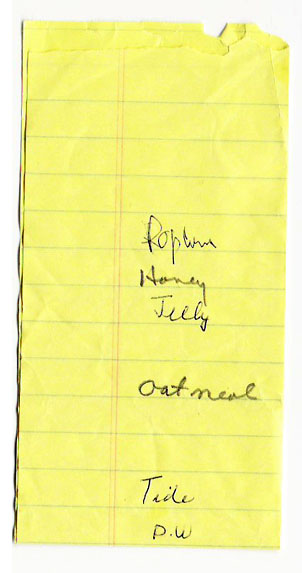 Honey
Jelly
Oatmeal
Tide
D.W